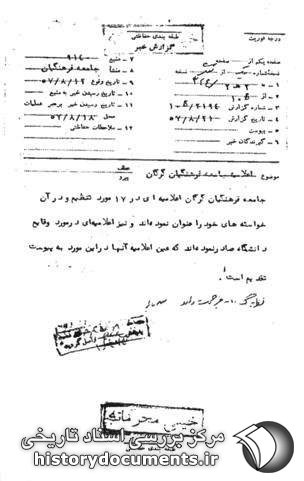 درجه فوریت
طبقه بندی حفاظتی
گزارش خبر
صفحه یکم از صفحه
نسخه شماره از نسخه
۱ - به ۳۴۱
۲ - از ۱۰ ﻫ
۳ - شماره گزارش ۱۰ ﻫ/۲۱۹۴
۴ - تاریخ گزارش ۵۷/۸/۲۱
۵ - پیوست
۶ - گیرندگان خبر
۷ - منبع ۹۱۴۰
۸ - منشأ جامعه فرهنگیان
۹ - تاریخ وقوع ۵۷/۸/۱۳
۱۰ - تاریخ رسیدن خبر به منبع
۱۱ - تاریخ رسیدن خبر برهبر عملیات
محل ۵۷/۸/۱۸
۱۲ - ملاحظات حفاظتی
موضوع اعلامیه جامعه فرهنگیان گرگان
جامعه فرهنگیان گرگان اعلامیه ای در ۱۷ مورد تنظیم و در آن
خواسته های خود را عنوان نموده اند و نیز اعلامیه ای در مورد وقایع
دانشگاه صادر نموده اند که عین اعلامیه آنها در این مورد به پیوست
تقدیم است.
خیلی محرمانه
مرکز بررسی اسناد تاریخی
historydocuments.ir